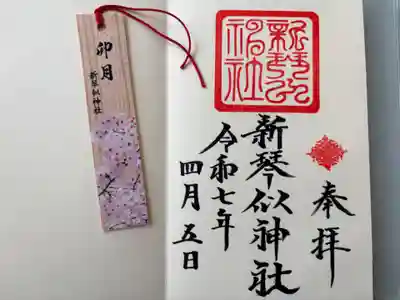 奉拝
新琴似神社
令和七年
四月五日
新琴似神社
卯月
新琴似神社